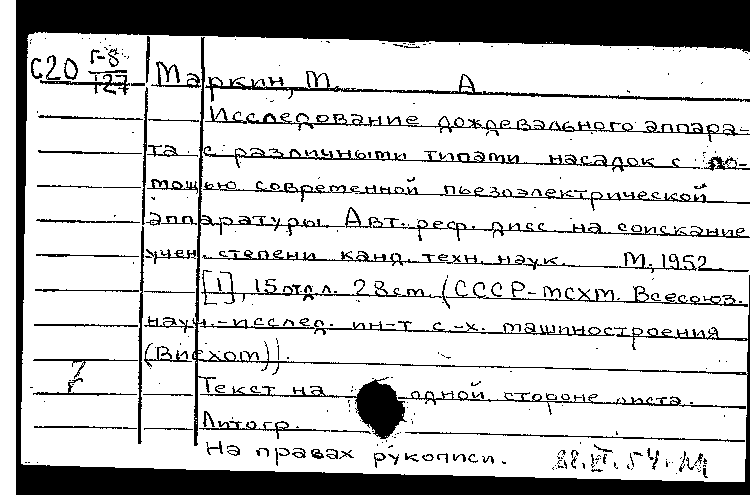 С20 Г-8/127 Маркин, М. А.
Исследование дождевального аппара-
та с различными типами насадок с по-
мощью современной пьезоэлектрической
аппаратуры. Авт. реф. дисс. на соискание
учен. степени канд. техн. наук. М., 1952.
[1], 15 отд.л. 28 см. (СССР-МСХМ. Всесоюз.
науч.-исслед. ин-т с.-х. машиностроения
(Висхом)).
Текст на одной стороне листа.
Литогр.
На правах рукописи.